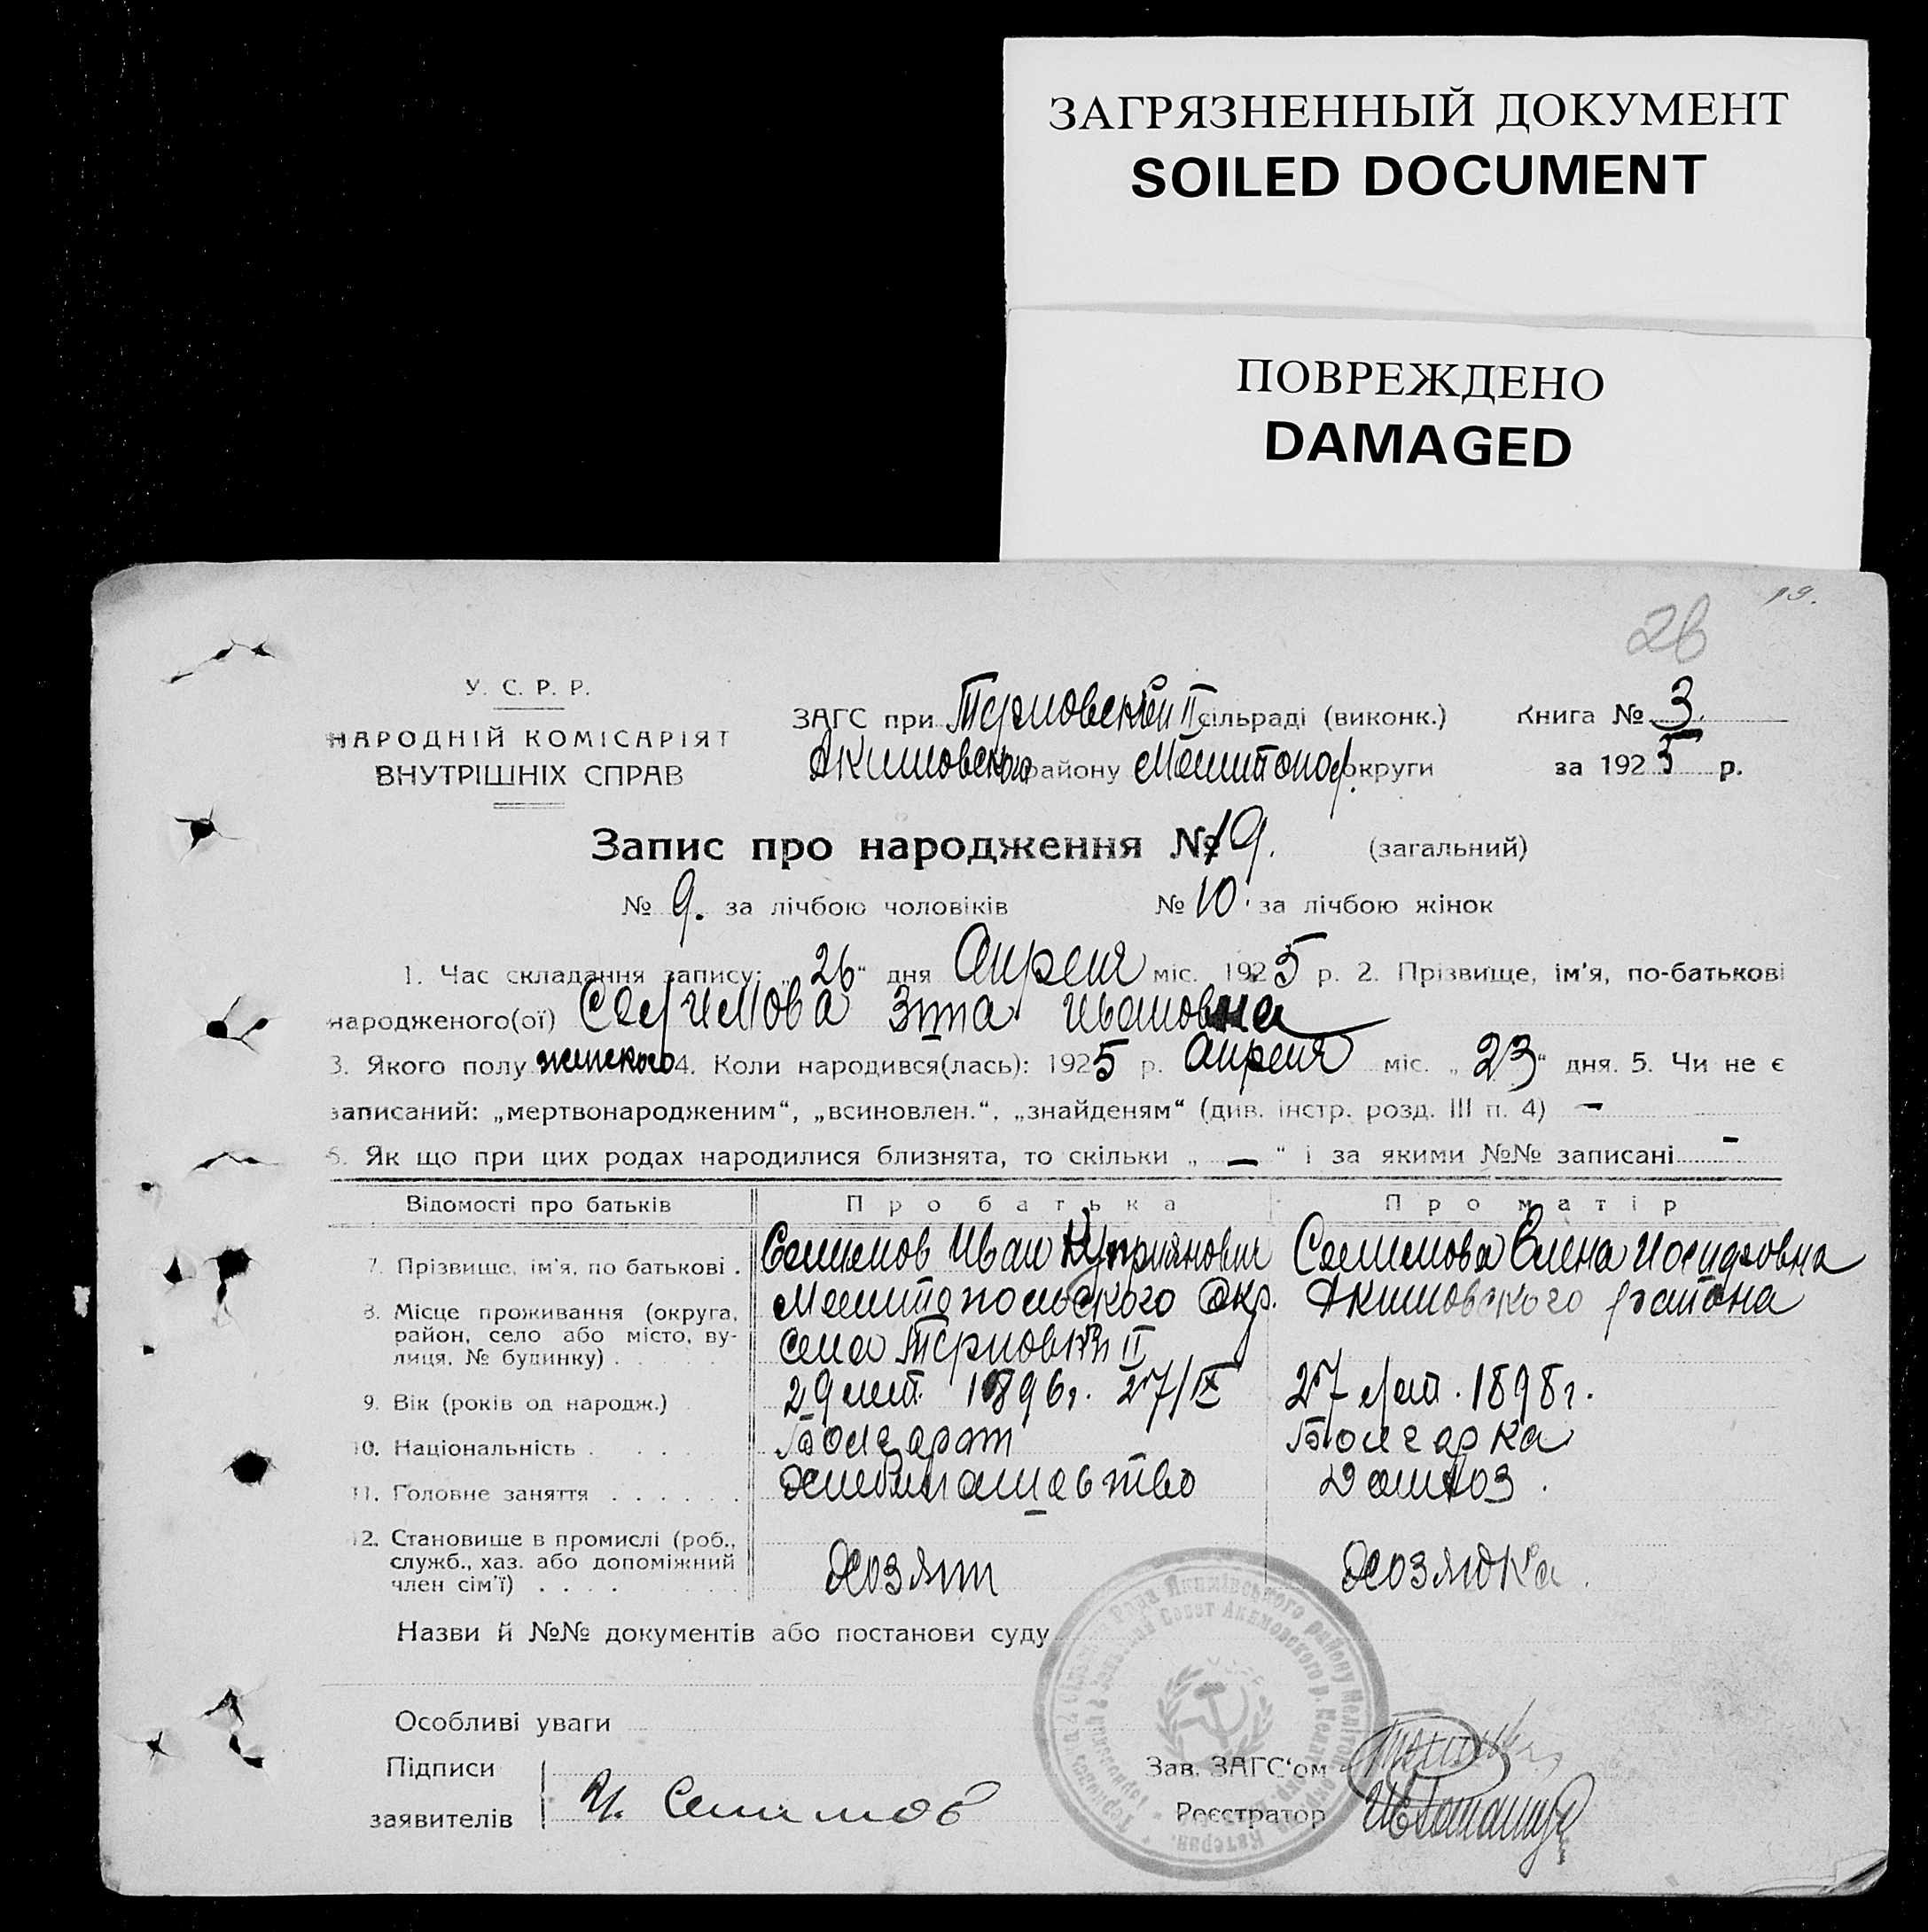 ЗАГРЯЗНЕННЫЙ ДОКУМЕНТ
SOILED DOCUMENT
ПОВРЕЖДЕНО
DAMAGED
19.
26
У. С. Р. Р.
НАРОДНІЙ КОМІСАРІЯТ
ВНУТРІШНІХ СПРАВ
ЗАГС при Терновской II сільраді (виконк.)
Книга № 3.
Акимовского району Мелитопол. округи
за 1925 р.
Запис про народження № 19. (загальний)
№ 9. за лічбою чоловіків № 10. за лічбою жінок
1. Час складання запису: „26“ дня Апреля міс. 1925 р. 2. Прізвище, ім'я, по-батькові
народженого(ої) Салимова Зина Ивановна
3. Якого полу женского 4. Коли народився(лась): 1925 р. Апреля міс. „23“ дня. 5. Чи не є
записаний: „мертвонародженим“, „всиновлен.“, „знайденям“ (див. інстр. розд. III п. 4) —
6. Як що при цих родах народилися близнята, то скільки „ — “ і за якими №№ записані —
Відомості про батьків Про батька Про матір
7. Прізвище, ім'я, по батькові . Селимов Иван Куприянович Селимова Елена Иосифовна
8. Місце проживання (округа, район, село або місто, вулиця, № будинку) . Мелитопольского Окр. Акимовского района
села Терновки II
9. Вік (років од народж.) 29 лет. 1896г. 27/IX 27 лет. 1898г.
10. Національність . Болгарин Болгарка
11. Головне заняття . . . . . . Хлебопашество Домхоз.
12. Становище в промислі (роб., служб., хаз. або допоміжний член сім'ї) . . . . Хозяин Хозяюка.
Назви й №№ документів або постанови суду
Особливі уваги
Підписи
заявителів И. Селимов
Зав. ЗАГС'ом
Реєстратор